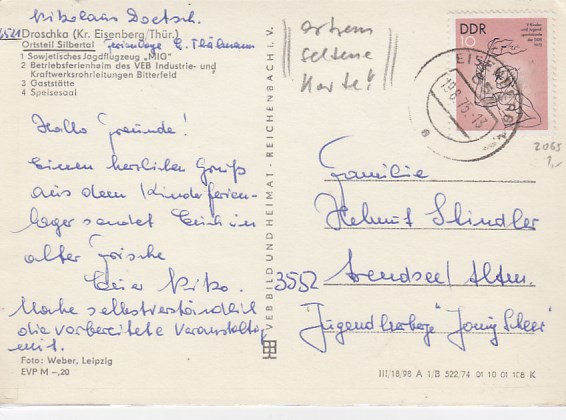 Nikolaus Doetsch.
6521 Droschka (Kr. Eisenberg/Thür.)
Ortsteil Silbertal Ferienlager E. Thälmann
1 Sowjetisches Jagdflugzeug „MIG"
2 Betriebsferienheim des VEB Industrie- und
Kraftwerksrohrleitungen Bitterfeld
3 Gaststätte
4 Speisesaal
Hallo Freunde!
Einen herzlichen Gruß
aus dem Kinderferien-
lager sendet Euch in
alter Frische
Euer Niko.
Mache selbstverständlich
die vorbereitete Veranstaltg
mit.
Foto: Weber, Leipzig
EVP M –,20
VEB BILD UND HEIMAT · REICHENBACH I. V.
extrem
seltene
Karte!
DDR
10
2065
1,-
Familie
Helmut Schindler
3552 Arendsee/Altm.
Jugendherberge "Jonny Scheer"
III/18/98 A 1/B 522/74 01 10 01 108 K